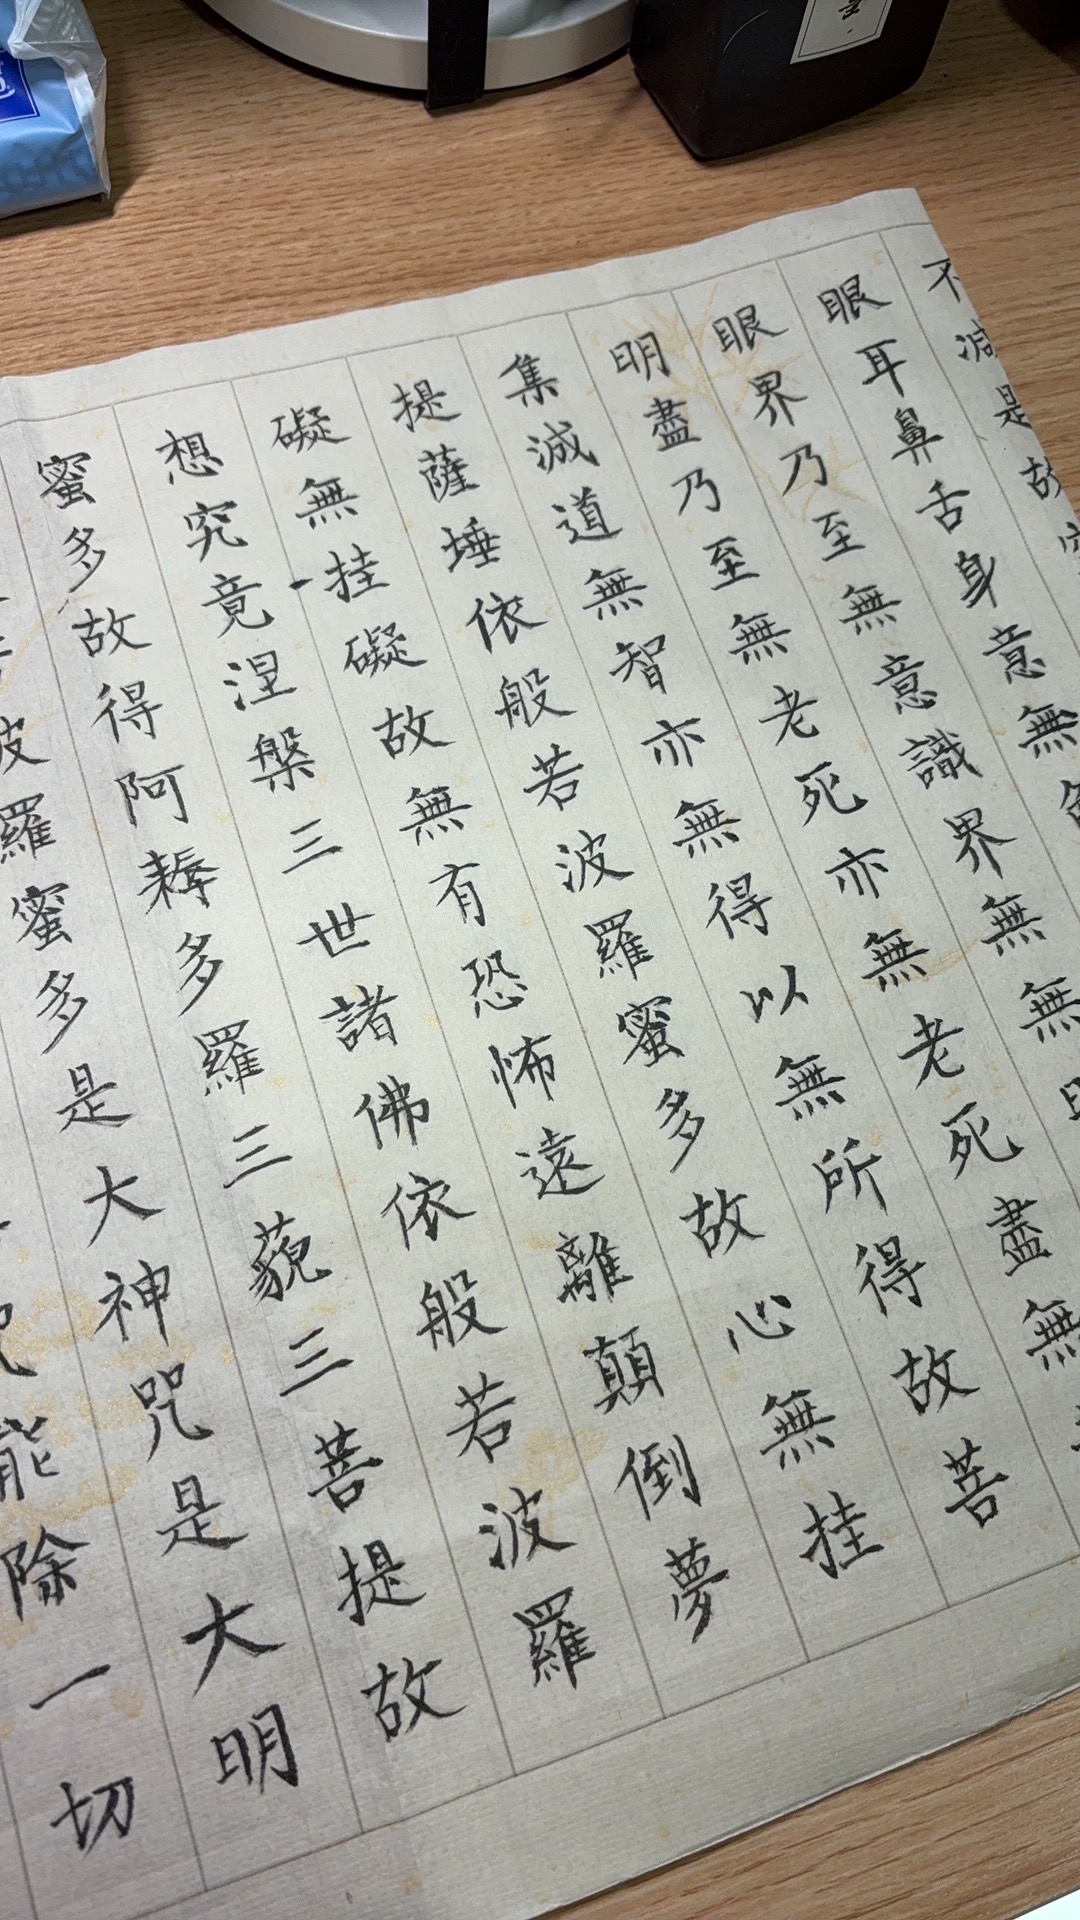 不減是故
眼耳鼻舌身意無
眼界乃至無意識界無無
明盡乃至無老死亦無老死盡無
集滅道無智亦無得以無所得故菩
提薩埵依般若波羅蜜多故心無挂
礙無挂礙故無有恐怖遠離顛倒夢
想究竟涅槃三世諸佛依般若波羅
蜜多故得阿耨多羅三藐三菩提故
波羅蜜多是大神咒是大明
能除一切